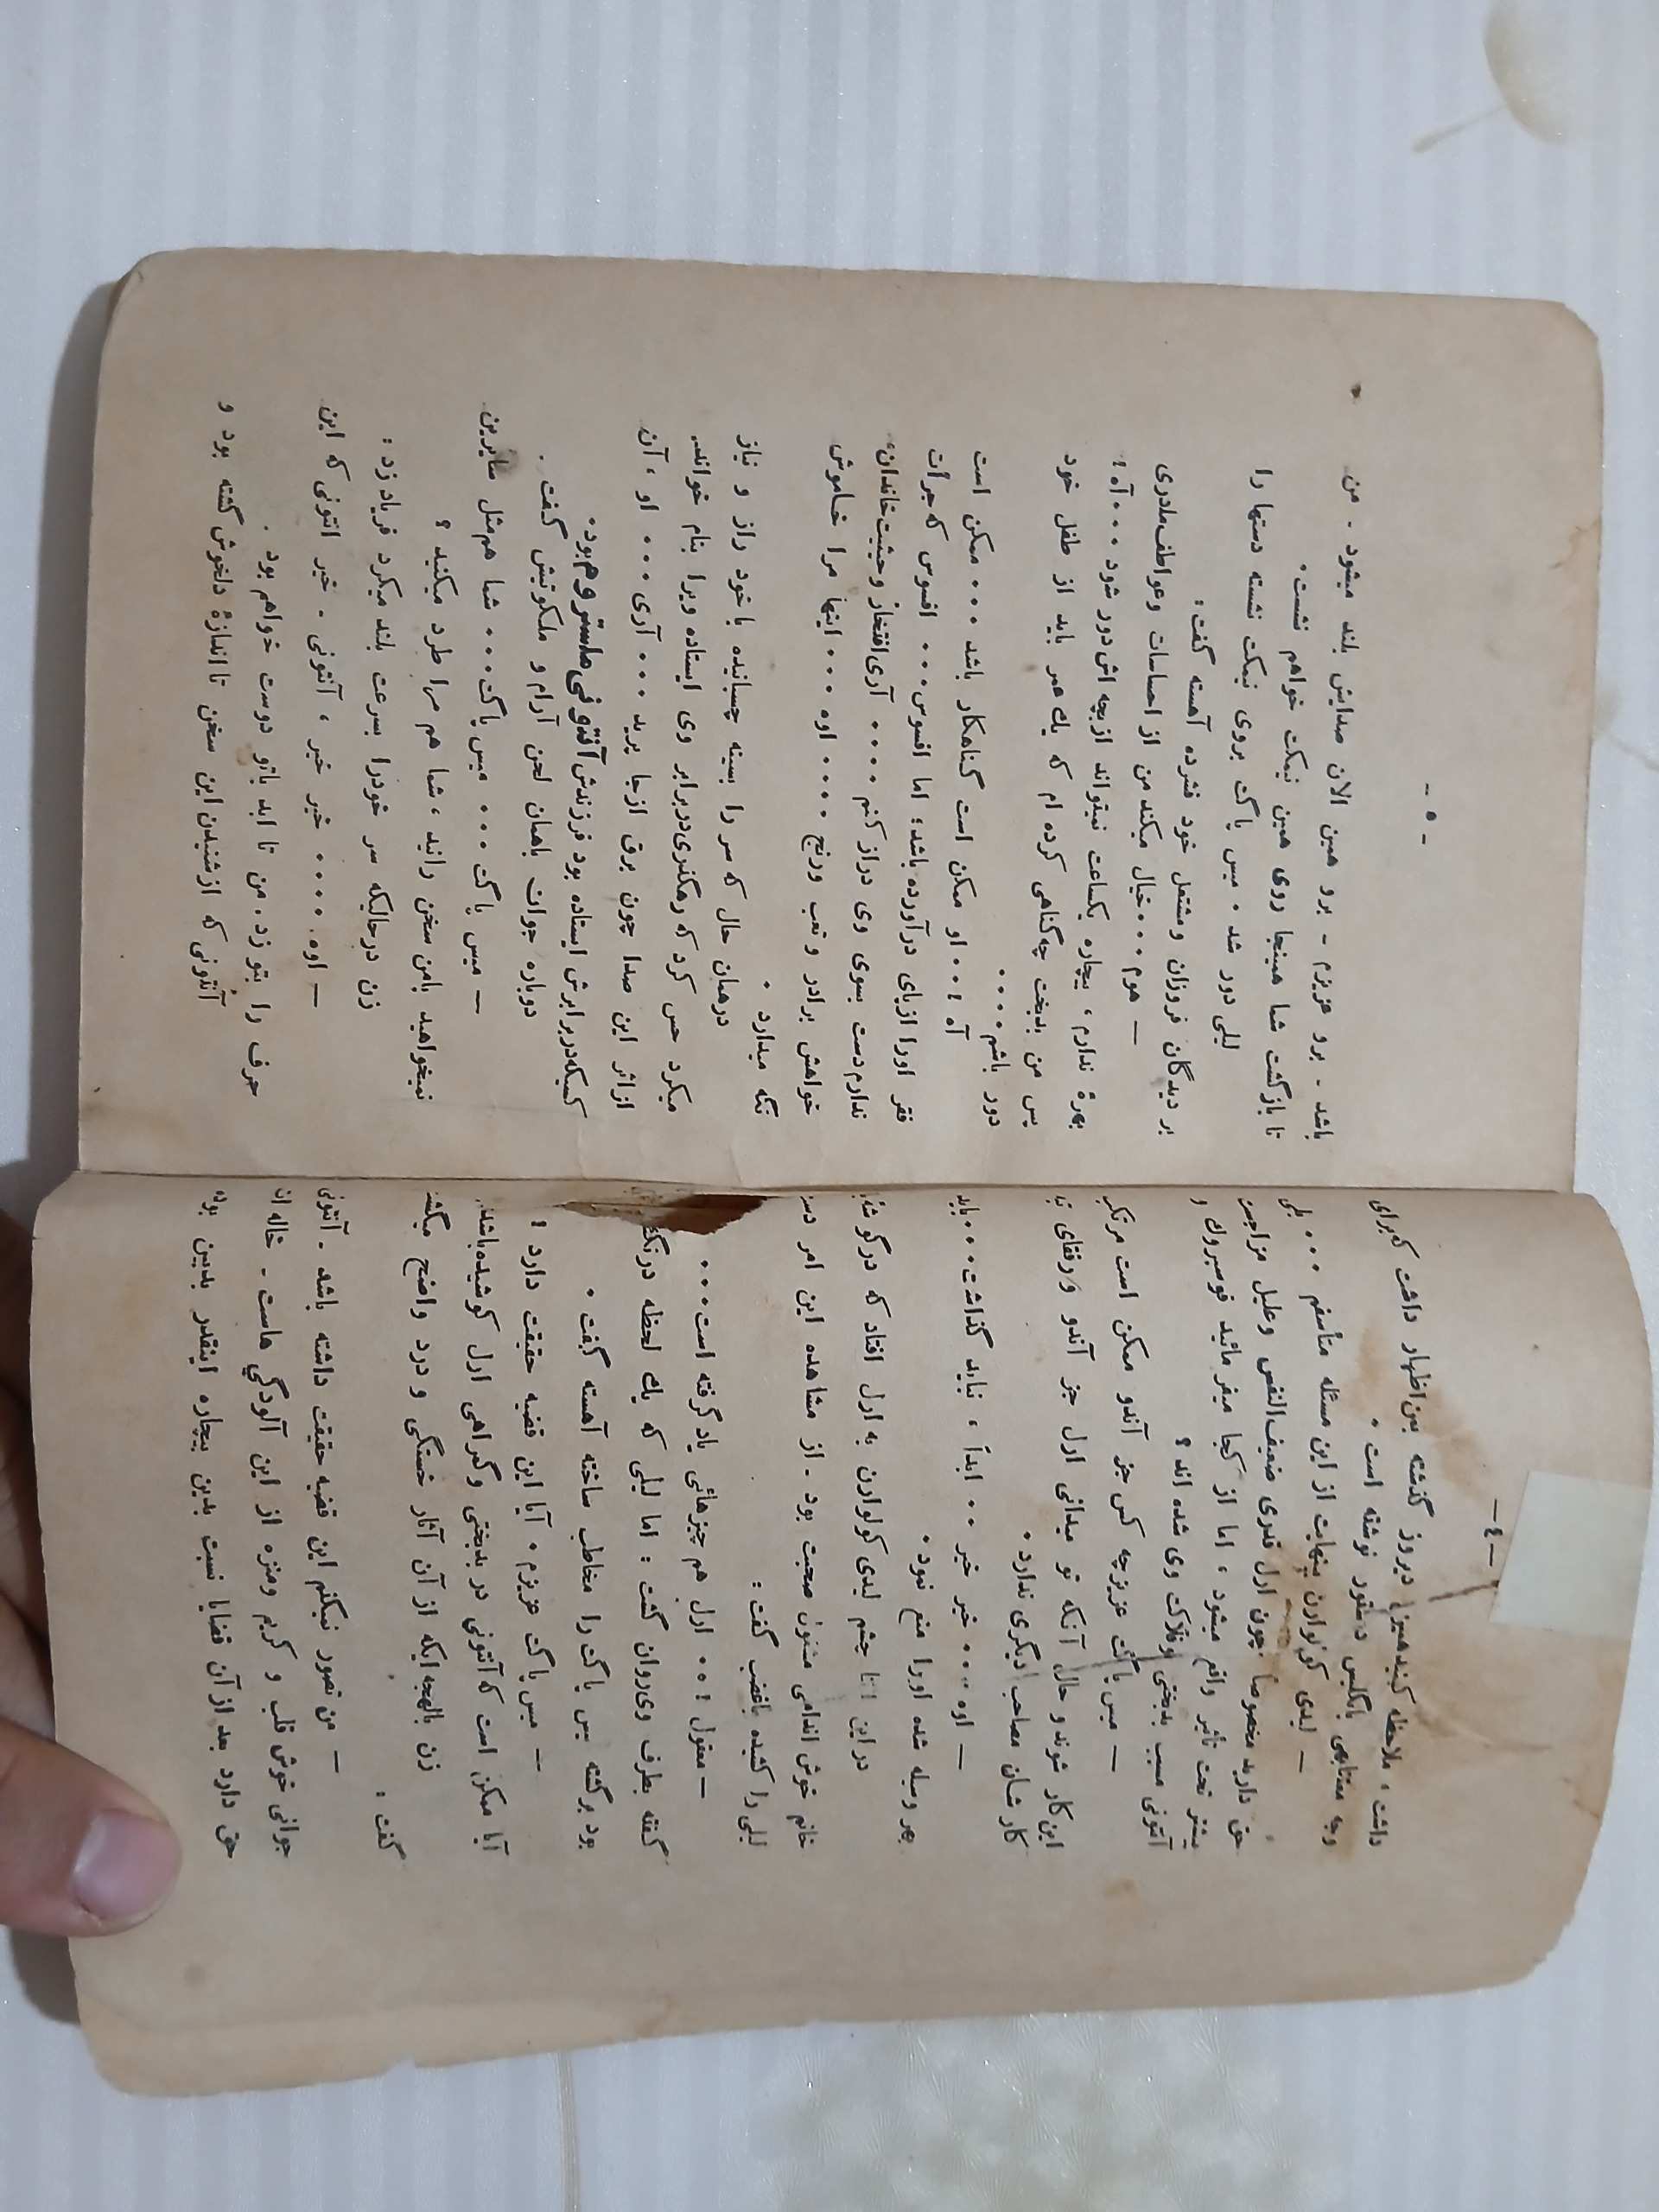 -٤-
داشت، ملاحظه کنیدهمیزا دیروز گذشته بمن اظهار داشت که برای
وجه متنابهی بانگلیس دستور نوشته است .
— لیدی کولوارن بینهایت از این مسئله متأسفم ... بلی
حق دارید مخصوصاً چون ارل قدری ضعیف‌النفس وعلیل مزاجست
بیشتر تحت تاثیر واقع میشود ، اما از کجا میفرمائید فوسبروك و
آنتونی مسبب بدبختی وفلاکت وی شده اند ؟
— میس باگت عزیز چه کس جز آندو ممکن است مرتکب
این کار شوند و حال آنکه تو میدانی ارل جز آندو و رفقای
کارشان مصاحب دیگری ندارد .
— اوه .... خیر خیر .. ابداً ، نباید گذاشت ... باید
بهر وسیله شده اورا منع نمود .
در این اثنا چشم لیدی کولوارن به ارل افتاد که درگوشهٔ
خانم خوش اندامی مشغول صحبت بود . از مشاهده این امر دست
لیلی را کشیده باغضب گفت :
— معقول ! .. ارل هم چیزهائی یاد گرفته است ...
گفته بطرف وی روان گشت : اما لیلی که یك لحظه درنگ
بود برگشته میس باگت را مخاطب ساخته آهسته گفت .
— میس باگت عزیزم . آیا این قضیه حقیقت دارد ؟
آیا ممکن است که آنتونی در بدبختی وگمراهی ارل کوشیده باشد.
زن بالهجه ایکه از آن آثار خستگی و درد واضح میگشت
گفت :
— من تصور نمیکنم این قضیه حقیقت داشته باشد . آنتونی
جوانی خوش قلب و کریم ومنزه از این آلودگی هاست - خاله ات
حق دارد بعد از آن قضایا نسبت بدین بیچاره اینقدر بدبین بوده
-٥-
باشد - برو عزیزم - برو همین الان صدایش بلند میشود . من
تا بازگشت شما همینجا روی همین نیمکت خواهم نشست.
لیلی دور شد . میس باگت بروی نیمکت نشسته دستها را
بر دیدگان فروزان ومشتعل خود فشرده آهسته گفت :
— هوم ... خیال میکند من از احساسات وعواطف مادری
بهرهٔ ندارم ، بیچاره یکساعت نمیتواند از بچه اش دور شود ... آه !
پس من بدبخت چه گناهی کرده ام که یك عمر باید از طفل خود
دور باشم ....
آه ! .. او ممکن است گناهکار باشد ... ممکن است
فقر اورا از پای درآورده باشد؛ اما افسوس ... افسوس که جرأت
ندارم دست بسوی وی دراز کنم .... آری افتخار و حیثیت خاندان؛
خواهش برادر و تعب ورنج .... اوه ... اینها مرا خاموش
نگه میدارد .
درهمان حال که سر را بسینه چسبانیده باخود راز و نیاز
میکرد حس کرد که رهگذری دربرابر وی ایستاده ویرا بنام خواند.
از اثر این صدا چون برق از جا پرید ... آری ... او ، آن
کسیکه دربرابرش ایستاده بود فرزندش آنتونی ماستروم بود.
دوباره جوان باهمان لحن آرام و ملکوتیش گفت .
— میس باگت ... میس باگت ... شما هم مثل سایرین
نمیخواهید بامن سخن رانید ، شما هم مرا طرد میکنید ؟
زن درحالیکه سر خودرا بسرعت بلند میکرد فریاد زد :
— اوه. .... خیر خیر ، آنتونی . خیر آنتونی که این
حرف را بتو زد . من تا ابد باتو دوست خواهم بود .
آنتونی که از شنیدن این سخن تا اندازهٔ دلخوش گشته بود و